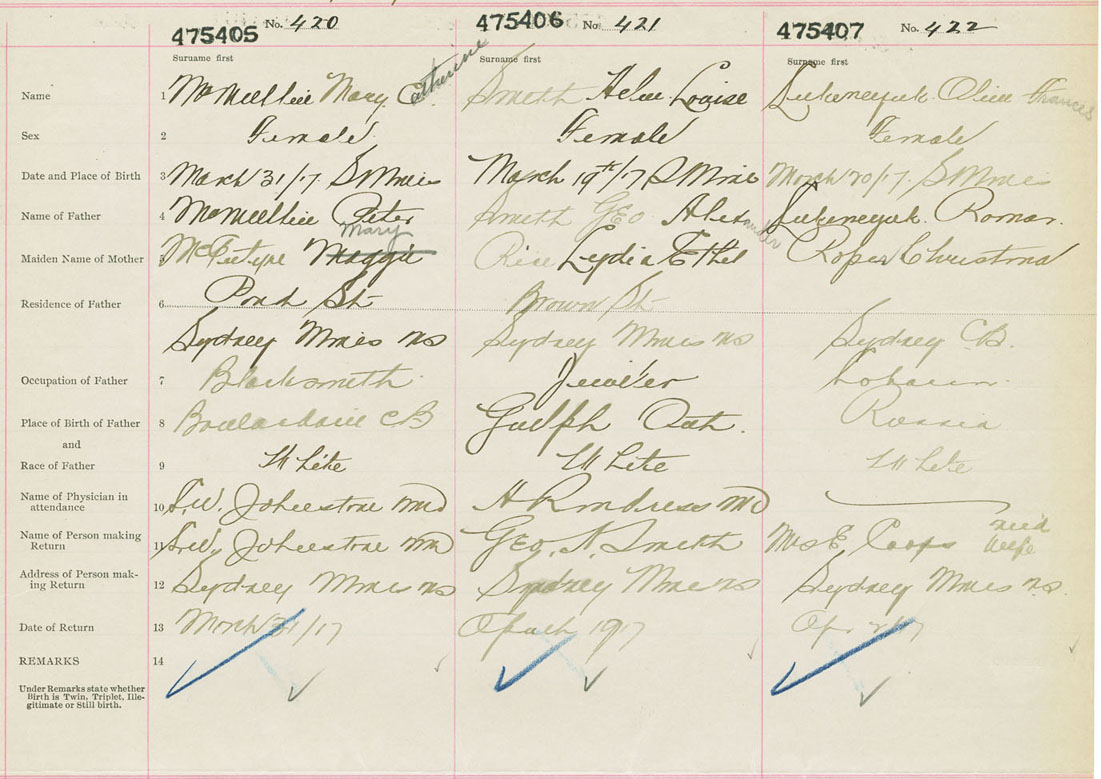 475405 No. 420 475406 No. 421 475407 No. 422
Surname first Surname first Surname first
Name 1 Mary C Catherine Smith Louise Frances
Sex 2 Female Female Female
Date and Place of Birth 3 March 31/17. S Mines March 19th/17 S Mines March 20/17. S Mines
Name of Father 4 Peter Smith Geo Alexander Roman.
Mary
Maiden Name of Mother 5 Maggie Rice Lydia Ethel Roper
Residence of Father 6 Pond St Brown St
Sydney Mines NS Sydney Mines NS Sydney C.B.
Occupation of Father 7 Blacksmith Jeweler
Place of Birth of Father 8 CB Guelph Ont. Russia
and
Race of Father 9 White White White
Name of Physician in
attendance 10 Johnstone MD MD
Name of Person making
Return 11 Johnstone MD Geo. A. Smith Mrs E. mid
wife
Address of Person mak-
ing Return 12 Sydney Mines NS Sydney Mines NS Sydney Mines NS.
Date of Return 13 March 31/17 1917 Apr
REMARKS 14
Under Remarks state whether
Birth is Twin, Triplet, Ille-
gitimate or Still birth.